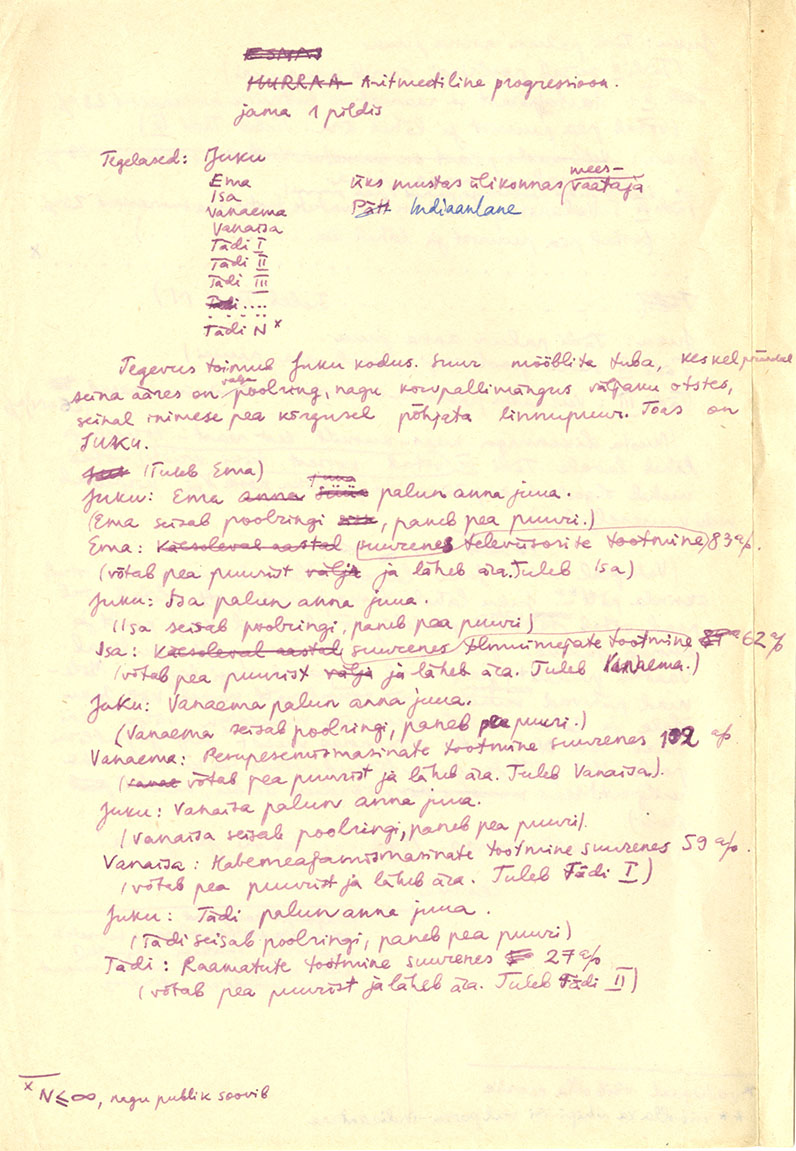 HURRAA Aritmeetiline progressioon.
jama 1 pildis
Tegelased: Juku
Ema
Isa
Vanaema
Vanaisa
Tädi I
Tädi II
Tädi III
Tädi ....
. . . . .
Tädi N x
mees-
üks mustas ülikonnas vaataja
Pätt Indiaanlane
Tegevus toimub Juku kodus. Suur mööblita tuba, keskel põrandal
seina ääres on välja poolring, nagu korvpallimängus väljaku otstes,
seinal inimese pea kõrgusel põhjata linnupuur. Toas on
JUKU.
(Tuleb Ema)
juua
Juku: Ema anna süüa palun anna juua.
(Ema seisab poolringi, paneb pea puuri.)
Ema: Käesoleval aastal suurenes televiisorite tootmine 83%.
(võtab pea puurist välja ja läheb ära. Tuleb Isa)
Juku: Isa palun anna juua.
(Isa seisab poolringi, paneb pea puuri)
Isa: Käesoleval aastal suurenes tolmuimejate tootmine 62%
(võtab pea puurist välja ja läheb ära. Tuleb Vanaema.)
Juku: Vanaema palun anna juua.
(Vanaema seisab poolringi, paneb pea puuri.)
Vanaema: Pesupesemismasinate tootmine suurenes 102 %.
(võtab pea puurist ja läheb ära. Tuleb Vanaisa).
Juku: Vanaisa palun anna juua.
(Vanaisa seisab poolringi, paneb pea puuri).
Vanaisa: Habemeajamismasinate tootmine suurenes 59%.
(võtab pea puurist ja läheb ära. Tuleb Tädi I)
Juku: Tädi palun anna juua.
(Tädi seisab poolringi, paneb pea puuri)
Tädi: Raamatute tootmine suurenes 27%
(võtab pea puurist ja läheb ära. Tuleb Tädi II)
x N ≤ ∞, nagu publik soovib